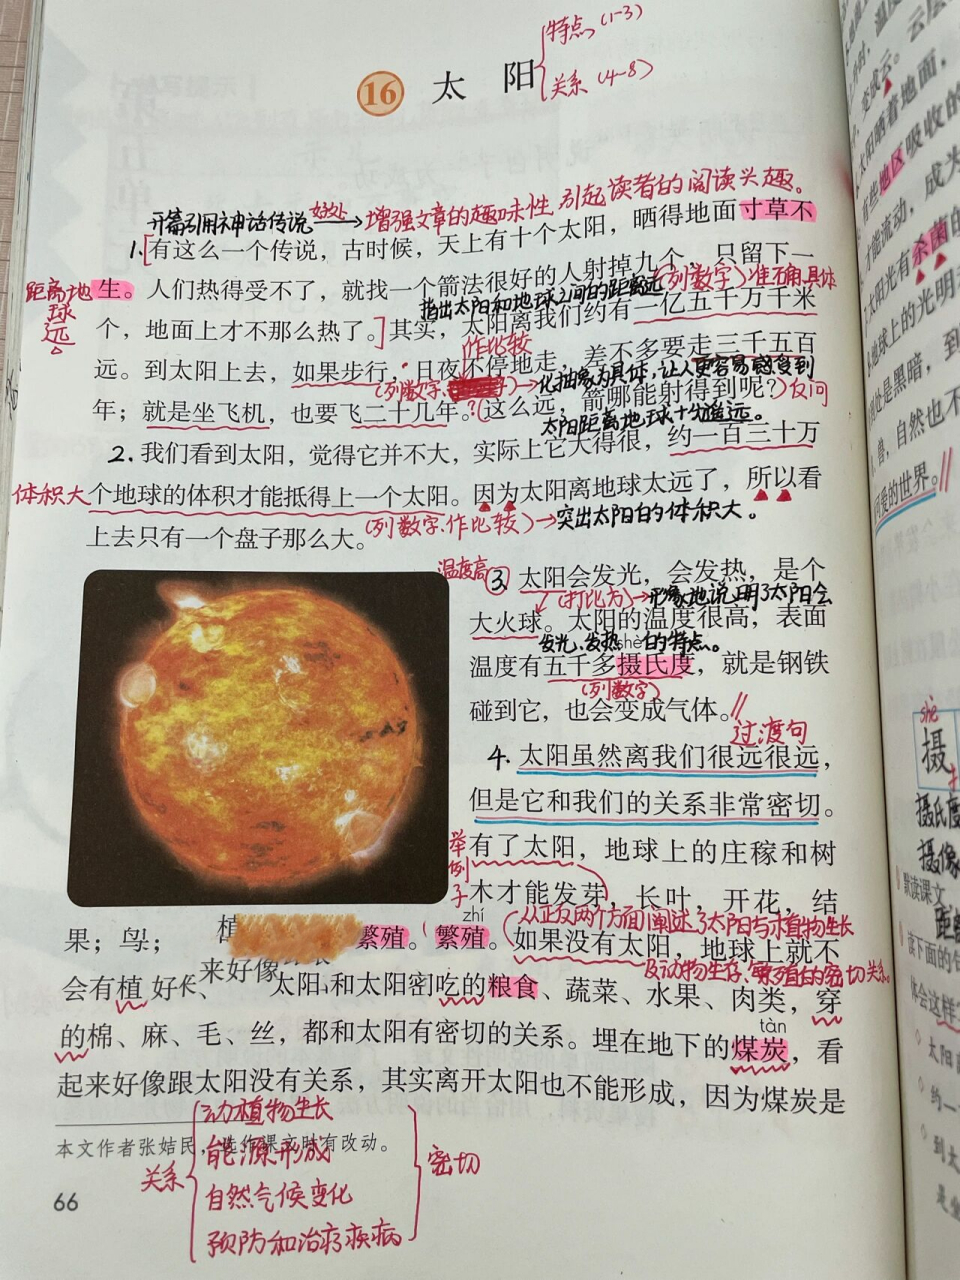 特点(1-3)
16 太阳
关系(4-8)
开篇引用神话传说 好处→增强文章的趣味性,引起读者的阅读兴趣。
1.有这么一个传说，古时候，天上有十个太阳，晒得地面寸草不
距离地球远
生。人们热得受不了，就找一个箭法很好的人射掉九个，只留下一
指出太阳和地球之间的距离远(列数字)准确具体
个，地面上才不那么热了。]其实，太阳离我们约有一亿五千万千米
作比较
远。到太阳上去，如果步行，日夜不停地走，差不多要走三千五百
(列数字、)→化抽象为具体,让人更容易感受到
年；就是坐飞机，也要飞二十几年。(这么远，箭哪能射得到呢?)反问
太阳距离地球十分遥远。
2.我们看到太阳，觉得它并不大，实际上它大得很，约一百三十万
体积大
个地球的体积才能抵得上一个太阳。因为太阳离地球太远了，所以看
(列数字.作比较)→突出太阳的体积大。
上去只有一个盘子那么大。
温度高
3.太阳会发光，会发热，是个
(打比方)→形象地说明了太阳会
大火球。太阳的温度很高，表面
发光、发热的特点。
shè
温度有五千多摄氏度，就是钢铁
(列数字)
碰到它，也会变成气体。
过渡句
4.太阳虽然离我们很远很远，
但是它和我们的关系非常密切。
举例子
有了太阳，地球上的庄稼和树
木才能发芽，长叶，开花，结
zhí
(从正反两个方面阐述了太阳与植物生长
果；鸟；植 繁殖。(繁殖。(如果没有太阳，地球上就不
及动物生存、繁殖的密切关系。
来好像
会有植 好 太阳,和太阳密吃的粮食、蔬菜、水果、肉类，穿
的棉、麻、毛、丝，都和太阳有密切的关系。埋在地下的煤炭，看
tàn
起来好像跟太阳没有关系，其实离开太阳也不能形成，因为煤炭是
本文作者张姞民，选作课文时有改动。
关系
动植物生长
能源形成
自然气候变化
预防和治疗疾病
密切
66
shè
摄
摄氏度
摄像
默读课文
读下面的句
体会这样
太阳
约一
到太
可爱的世界。